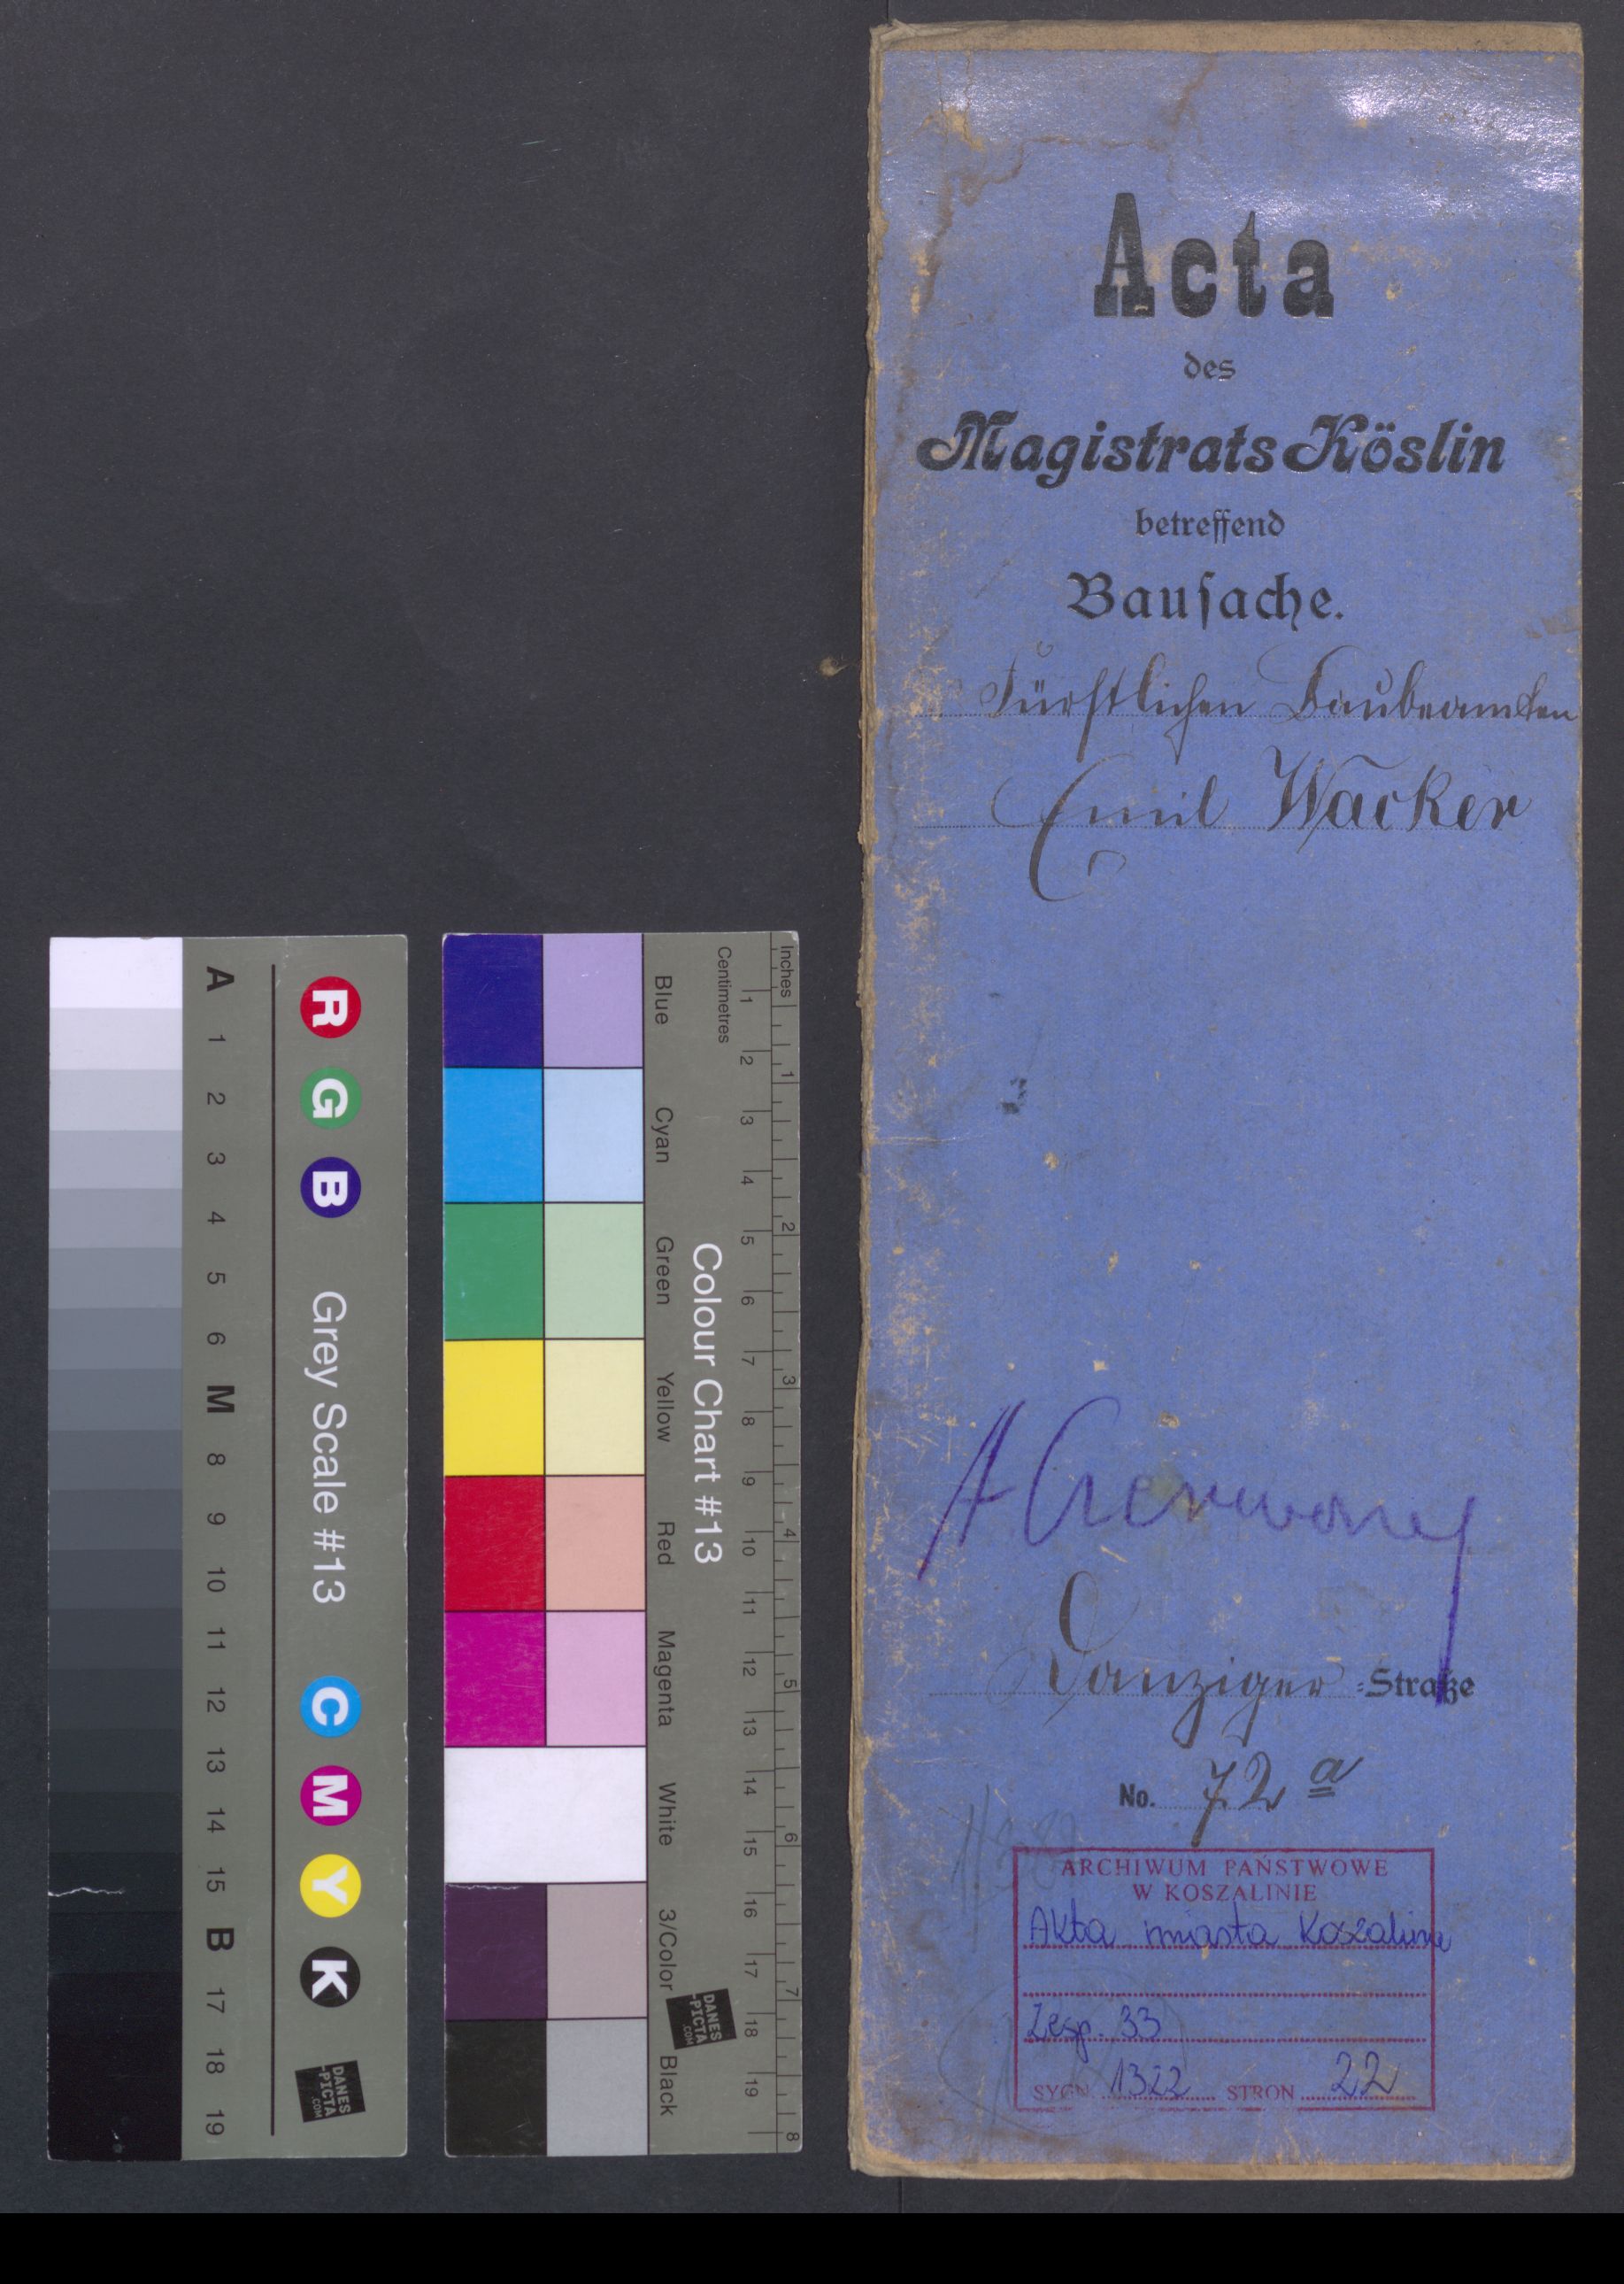 Acta
des
Magistrats Köslin
betreffend
Bausache.
Fürstlichen Baubeamten
Emil Wacker
A Czerwony
Danziger-Straße
No. 72 a
ARCHIWUM PAŃSTWOWE
W KOSZALINIE
Akta miasta Koszalina
Zesp. 33
SYGN. 1322 STRON 22
A 1 2 3 4 5 6 M 8 9 10 11 12 13 14 15 B 17 18 19
R G B Grey Scale #13 C M Y K
DANES
-PICTA
.COM
Blue Cyan Green Yellow Red Magenta White 3/Color Black
Colour Chart #13
DANES
-PICTA
.COM
Centimetres 1 2 3 4 5 6 7 8 9 10 11 12 13 14 15 16 17 18 19
Inches 1 2 3 4 5 6 7 8